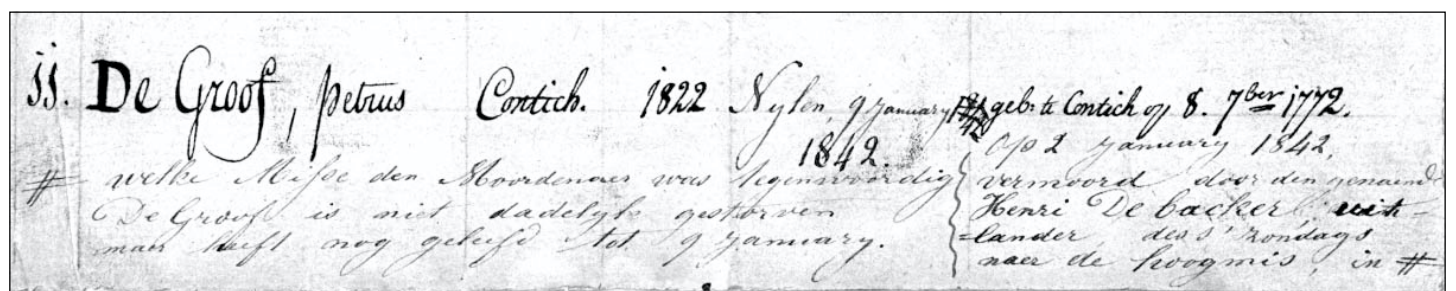 55. De Groof, petrus Contich. 1822 Nylen, 9 january 1842. gebr. te Contich op 8. 7ber 1772.
Op 2 january 1842,
vermoord door den genaemd
Henri De backer, uit-
=lander, des s' zondags
naer de hoogmis, in #
# welke Misse den Moordenaer was tegenwoordig
De Groof is niet dadelyk gestorven
maer heeft nog geleefd tot 9 january.